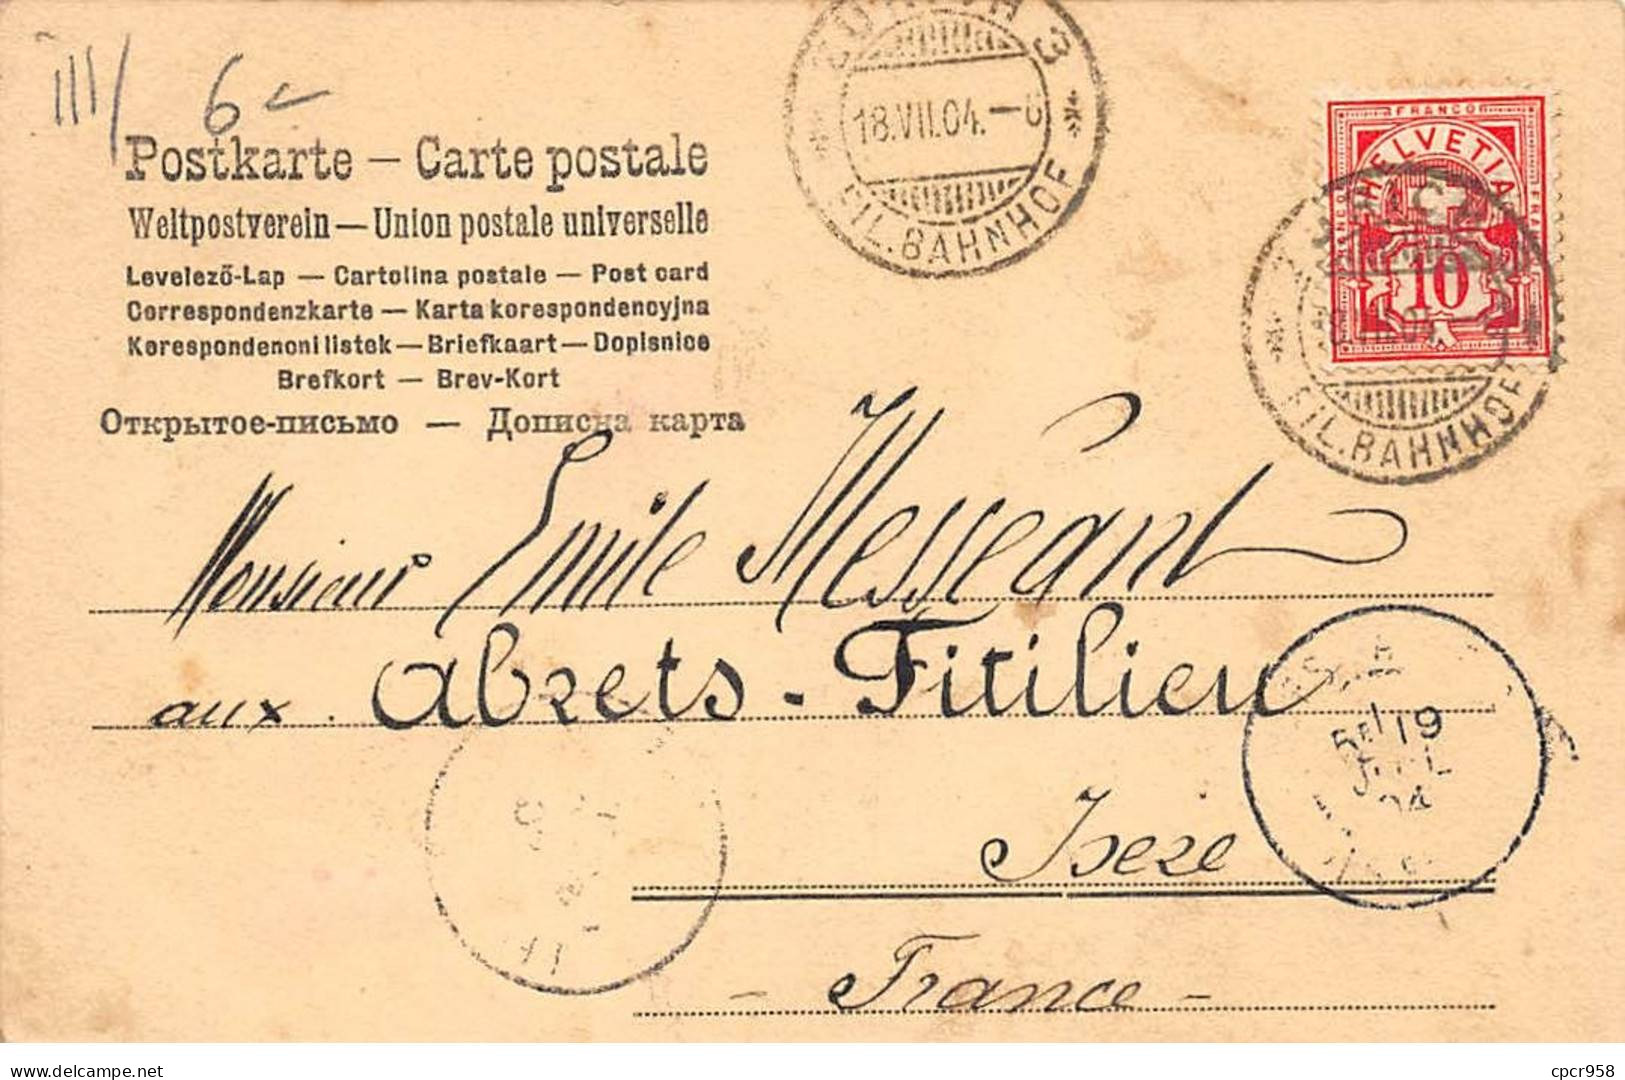 III/ 6
Postkarte — Carte postale
Weltpostverein — Union postale universelle
Levelező-Lap — Cartolina postale — Post card
Correspondenzkarte — Karta korespondencyjna
Korespondencni listek — Briefkaart — Dopisnice
Brefkort — Brev-Kort
Открытое-письмо — Дописна карта
3
18.VII.04.–
FIL. BAHNHOF
FRANCO
HELVETIA
FRANCO
10
FIL. BAHNHOF
Monsieur Emile Messeant
aux Abrets-Fitilieu
Isere
- France -
19
04
cpcr958